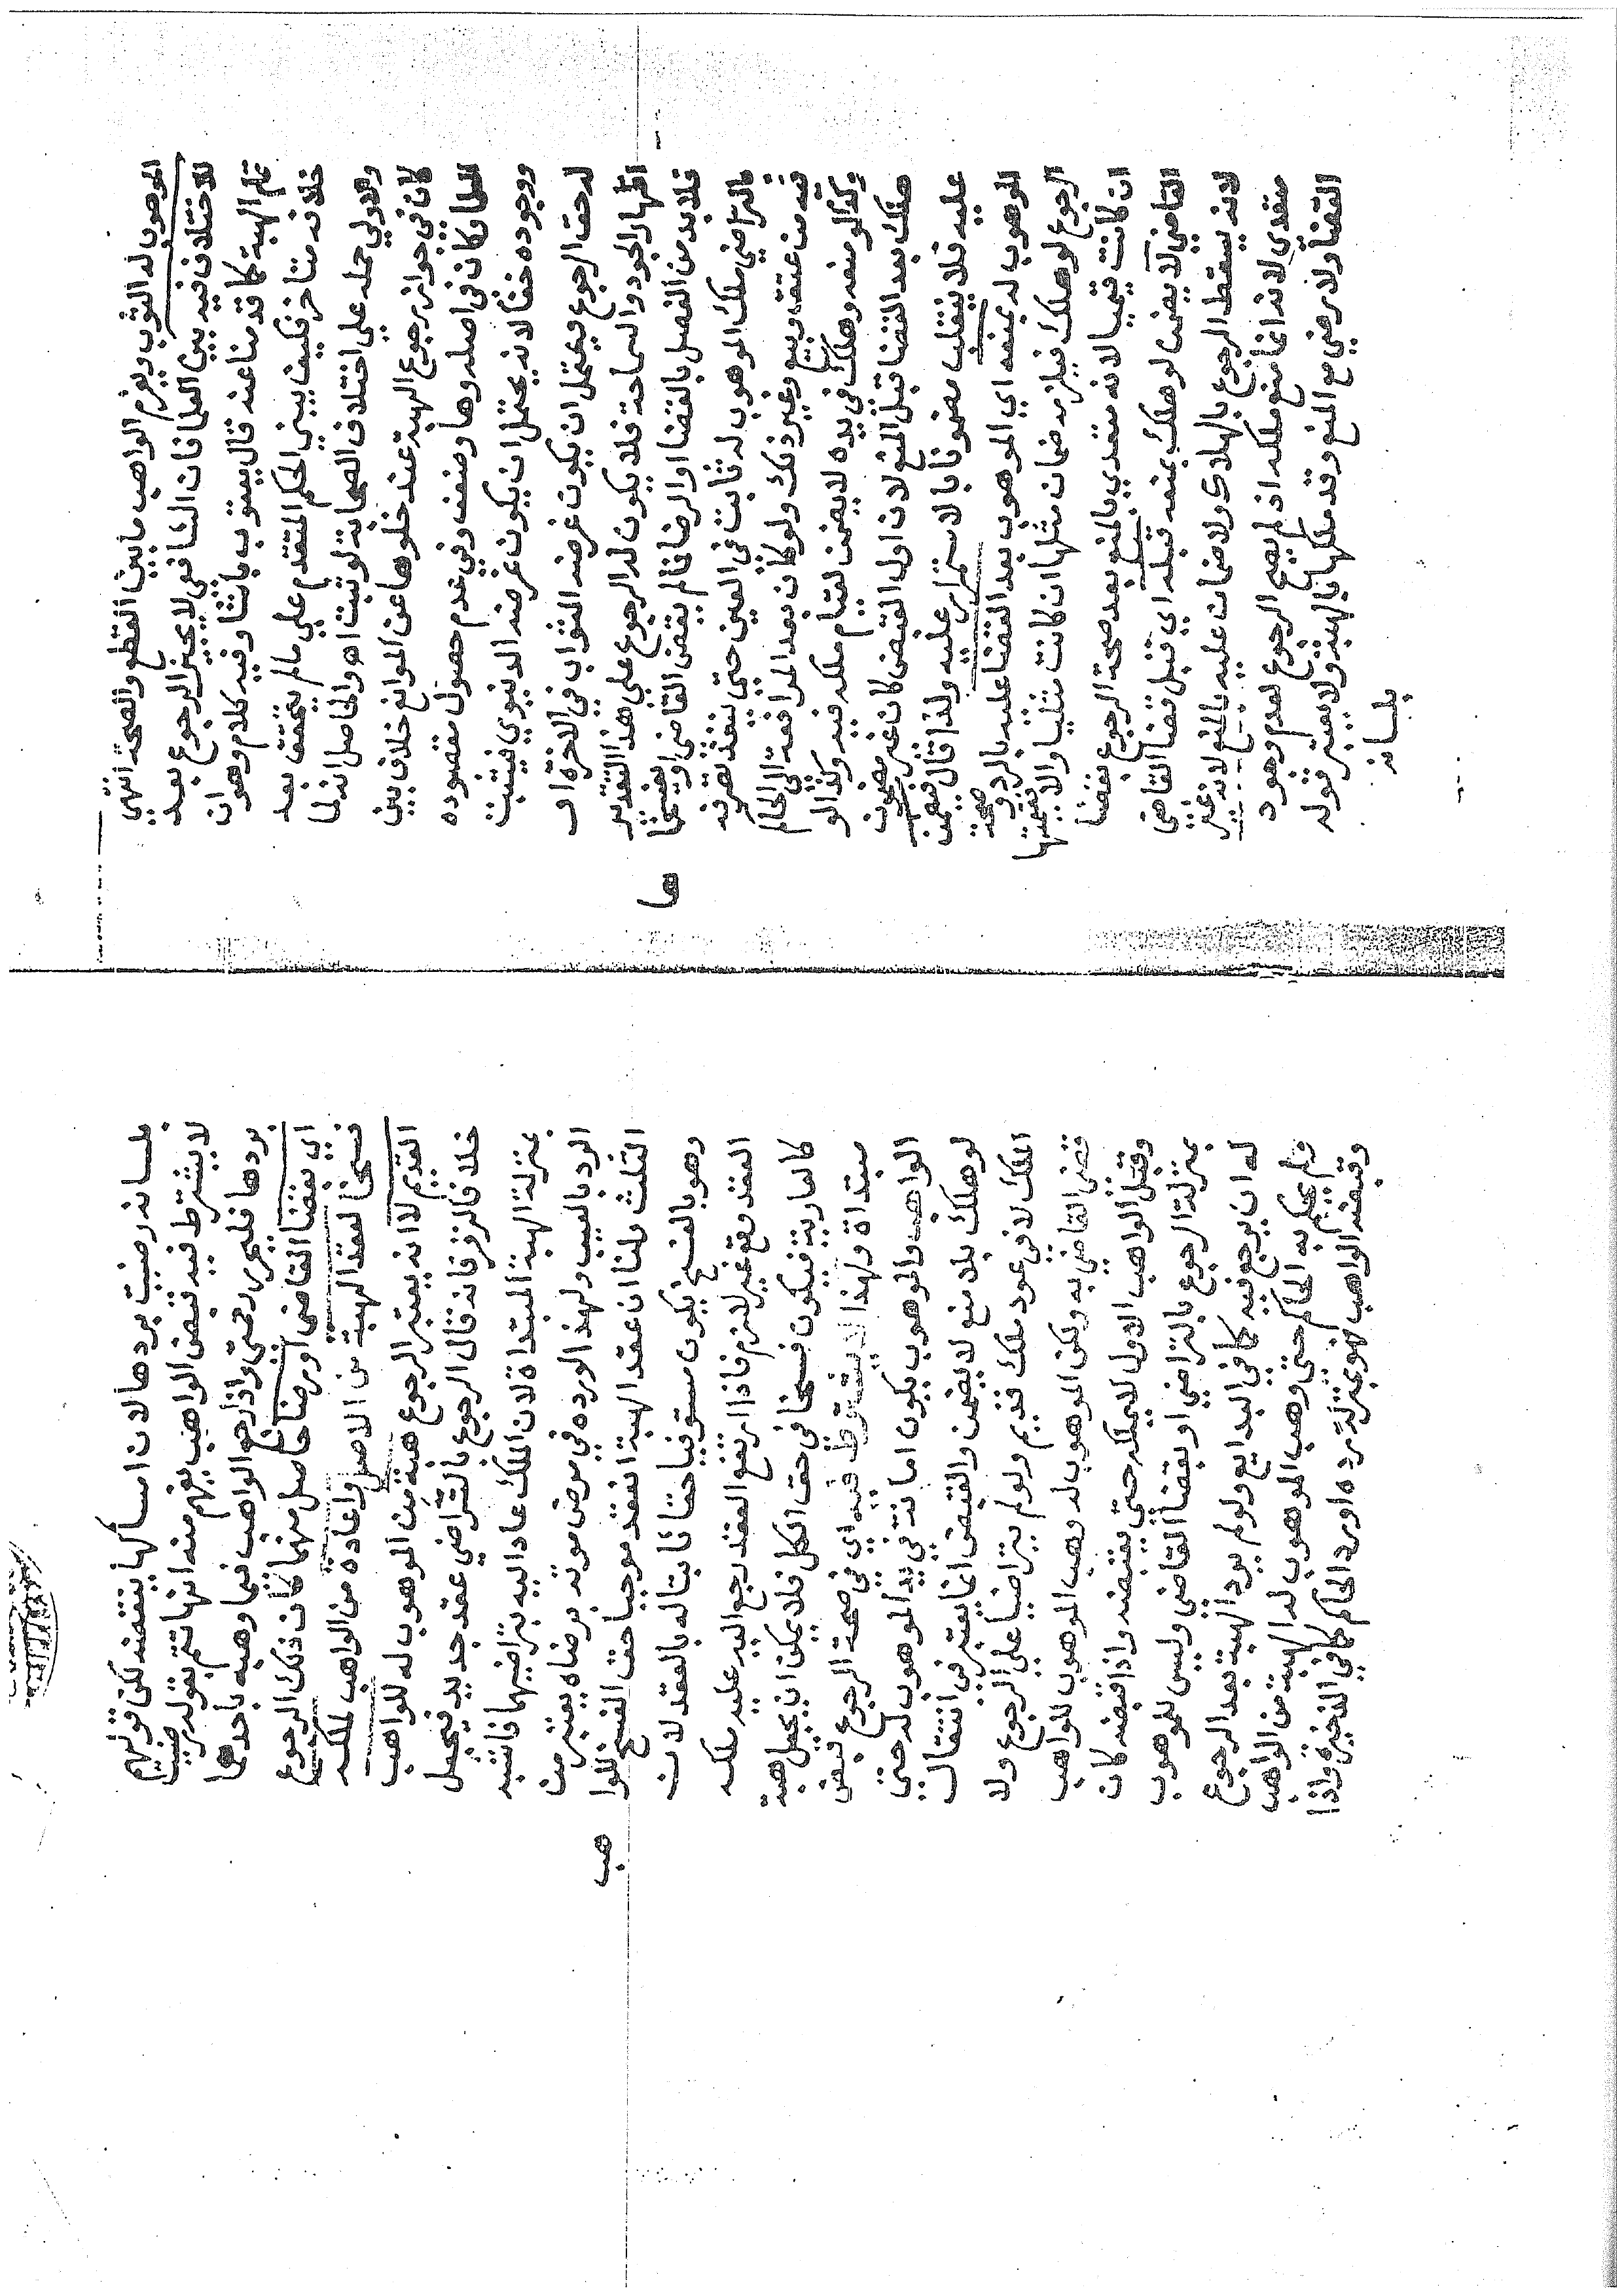 الموهوب له الثوب ويغرم الواهب ما بين القطع والصحة انتهى
للاختلاف فيه بين العلما فان الشافعي لا يجيز الرجوع بعد
تمام الهبة كما قدمنا عنه قال يعقوب باشا وفيه كلام وهو ان
خلافه متاخر فكيف يبني الحكم المتقدم على مالم يتحقق بعد
والاولي حمله على اختلاف الصحابة لو ثبت اهو والحاصل انه لما
كان في جواز رجوع الهبة عند خلوها عن الموانع خلاف بين
العلما وكان في اصله وها وضعف وفي عدم حصول مقصوده
ووجوده خفا لانه يحتمل ان يكون غرضه الدنيوي فيثبت
له حق الرجوع ويحتمل ان يكون غرضه الثواب في الاخرة او
اظهار الجود والسماحة فلا يكون له الرجوع على هذا التقدير
فلا بد من الفصل بالقضا او الرضا فما لم يقض القاضي او يفسخا
بالتراضي ملك الموهوب له ثابت في العين حتى ينفذ تصرفه
فيه من عتقه وبيع وغير ذلك ولو كان بعد المرافعة الى الحاكم
وكذا لو منعه وهلك في يده لا يضمن لقيام ملكه فيه وكذا لو
هلك بعد القضا قبل المنع لان اول القبض كان غير مضمون
عليه فلا ينقلب مضمونا بالاستمرار عليه ولذا قال يضمن
الموهوب له بمنعه اي الموهوب بعد القضا عليه بالرد و صحة
الرجوع لو هلك فيلزمه ضمان مثلها ان كانت مثليا والا بقيمتها
ان كانت قيميا لانه متعدي بالمنع بعد صحة الرجوع بقضا
القاضي لا يضمن لو هلك بمنعه قبله اي قبل قضا القاضي
لانه يسقط الرجوع بالهلاك ولا ضمان عليه بالمنع لانه غير
متعدي لانه انما منع ملكه اذ لم يصح الرجوع لعدم وجود
القضا ولا رضي مع المنع وقد ملكها بالهبة ولا يعتبر قوله
بلسانه
بلسانه رضيت بردها لان امساكها ينقضه لكن قولهم
لا يشترط فيه قبض الواهب يفهم منه انها تتم بقوله رضيت
بردها فليحرر رحمتي واذا رجع الواهب فيما وهبه باحدهما
اي بقضا القاضي او رضا حاصل منهما كان ذلك الرجوع
فسخا لعقد الهبة من الاصل واعادة من الواهب لملكه
القديم لا انه يعتبر الرجوع هبة من الموهوب له للواهب
خلافا لزفر فانه قال الرجوع بالتراضي عقد جديد فيجعل
بمنزلة الهبة المبتداة لان الملك عاد اليه بتراضيهما فاشبه
الرد بالعيب ولهذا لو رده في مرض موته برضاه يعتبر من
الثلث ولنا ان عقد الهبة انعقد موجبا حق الفسخ للوا
وهو بالفسخ يكون مستوفيا حقا ثابتا له بالعقد لان
العقد وقع غير لازم فاذا ارتفع العقد رجع اليه عليه ملكه
كالعارية فيكون فسخا في حق الكل فلا يمكن ان يجعل هبة
مبتداة ولهذا لا يشترط فيه اي في صحة الرجوع قبض
الواهب والموهوب يكون امانة في يد الموهوب له حتى
لو هلك بلا منع لا يضمن والقبض انما يعتبر في انتقال
الملك لا في عود ملك قديم ولو لم يتراضيا على الرجوع ولا
قضى القاضي به ولكن الموهوب له وهب الموهوب للواهب
وقبل الواهب الاول لا يملكه حتى يقبضه واذا قبضه كان
بمنزلة الرجوع بالتراضي او بقضا القاضي وليس للموهوب
له ان يرجع فيه كما في البدايع ولو لم يرد الهبة بعد الرجوع
ولم يحكم به الحاكم حتى وهب الموهوب له الهبة من الواهب
وقبضه الواهب فهو بمنزلة رده او رد الحاكم كما في الذخيرة واذا
هب